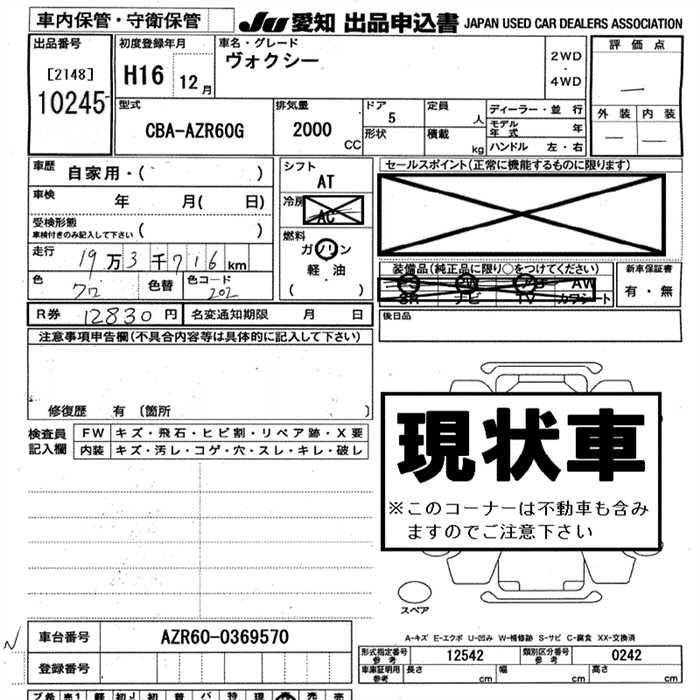 車内保管・守衛保管
JU 愛知 出品申込書 JAPAN USED CAR DEALERS ASSOCIATION
出品番号
[2148]
10245
初度登録年月
H16 12月
車名・グレード
ヴォクシー
2WD
・
4WD
評価点
—
外装 内装
— —
型式
CBA-AZR60G
排気量
2000 CC
ドア
5
形状
定員
人
積載
kg
ディーラー・並行
モデル年式 年
ハンドル 左・右
車歴 自家用・( )
車検 年 月( 日)
受検形態
車検付きのみ記入して下さい ( )
走行 19万3千716km
色 クロ 色替 色コード 202
シフト
AT
冷房
AC
燃料
ガソリン
軽油
( )
セールスポイント(正常に機能するものに限ります)
装備品(純正品に限り○をつけてください)
PS PW AW
SR ナビ TV カワシート
新車保証書
有・無
R券 12830円 名変通知期限 月 日
後日品
注意事項申告欄(不具合内容等は具体的に記入して下さい)
修復歴 有 (箇所 )
検査員記入欄
FW キズ・飛石・ヒビ割・リペア跡・X要
内装 キズ・汚レ・コゲ・穴・スレ・キレ・破レ
現状車
※このコーナーは不動車も含み
ますのでご注意下さい
スペア
A-キズ E-エクボ U-凹み W-補修跡 S-サビ C-腐食 XX-交換済
車台番号 AZR60-0369570
登録番号
形式指定番号
参考
12542
類別区分番号
参考
0242
車庫証明用
参考
長さ cm 幅 cm 高さ cm